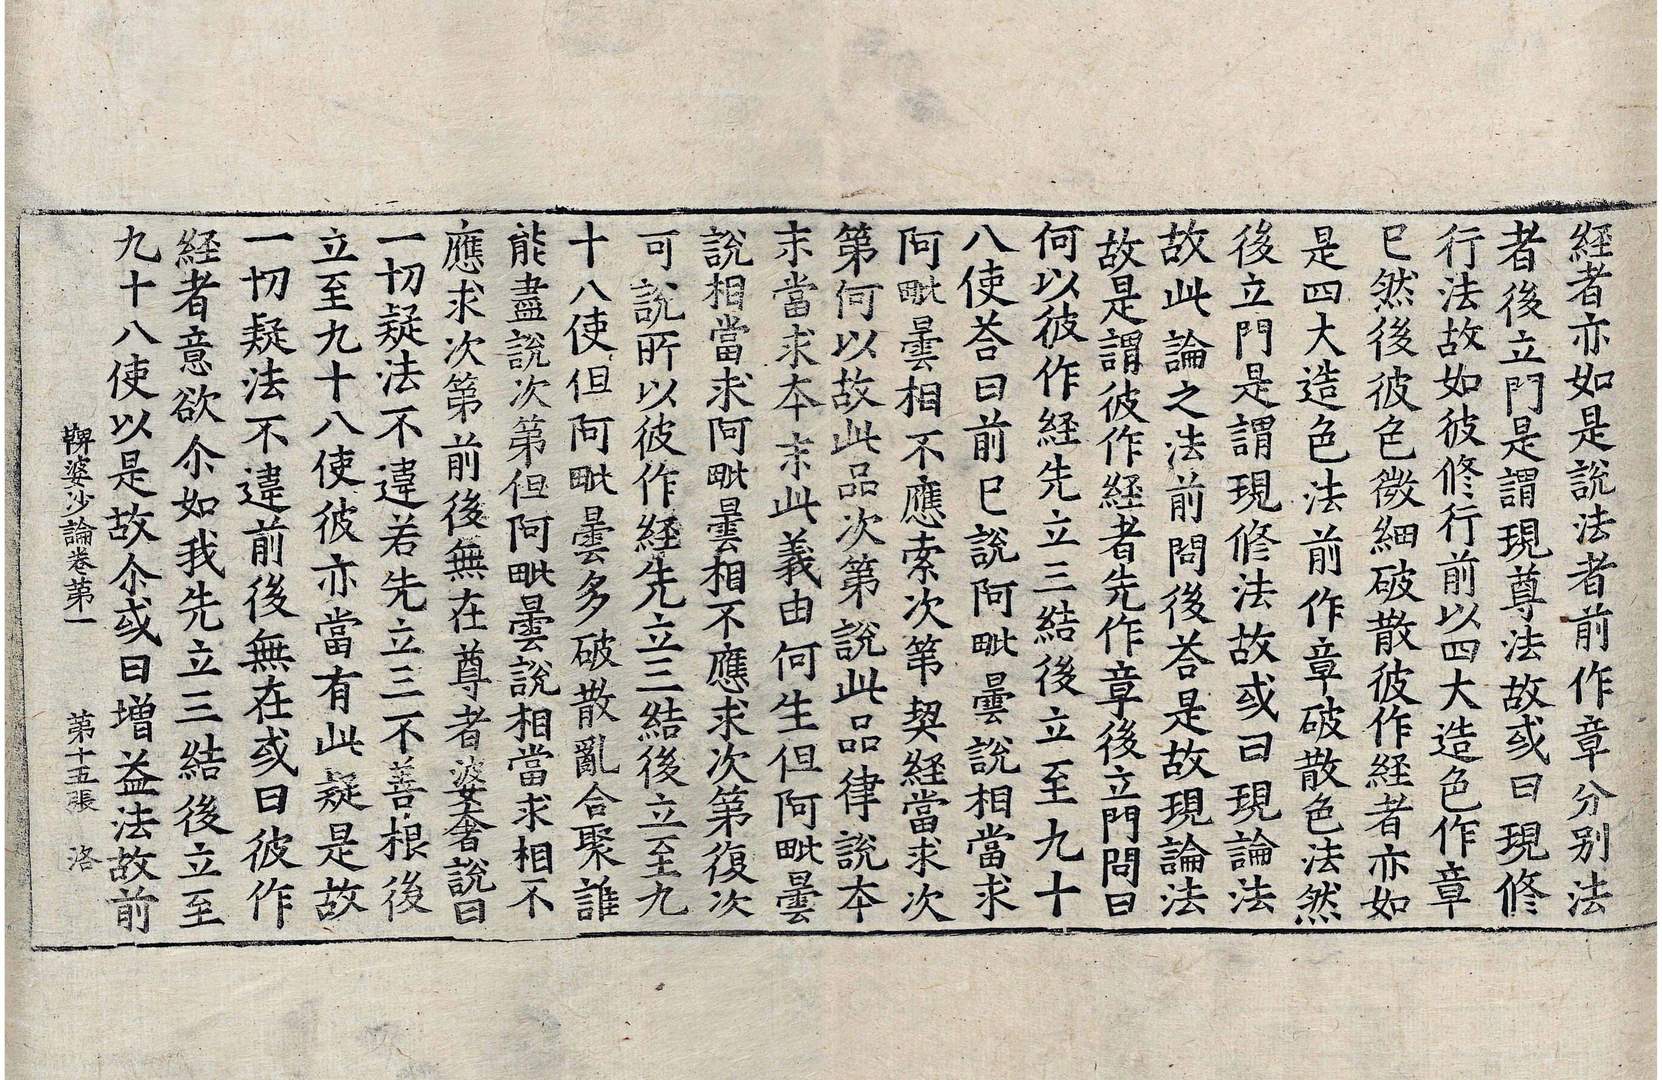 経者亦如是說法者前作章分别法
者後立門是謂現尊法故或曰現修
行法故如彼修行前以四大造色作章
已然後彼色微細破散彼作経者亦如
是四大造色法前作章破散色法然
後立門是謂現修法故或曰現論法
故此論之法前問後荅是故現論法
故是謂彼作経者先作章後立門問曰
何以彼作経先立三結後立至九十
八使荅曰前已說阿毗曇說相當求
阿毗曇相不應索次第契経當求次
第何以故此品次第說此品律說本
末當求本末此義由何生但阿毗曇
說相當求阿毗曇相不應求次第復次
可說所以彼作経先立三結後立至九
十八使但阿毗曇多破散亂合聚誰
能盡說次第但阿毗曇說相當求相不
應求次第前後無在尊者婆奢說曰
一切疑法不違若先立三不善根後
立至九十八使彼亦當有此疑是故
一切疑法不違前後無在或曰彼作
経者意欲尒如我先立三結後立至
九十八使以是故尒或曰增益法故前
鞞婆沙論卷第一 第十五張 洛